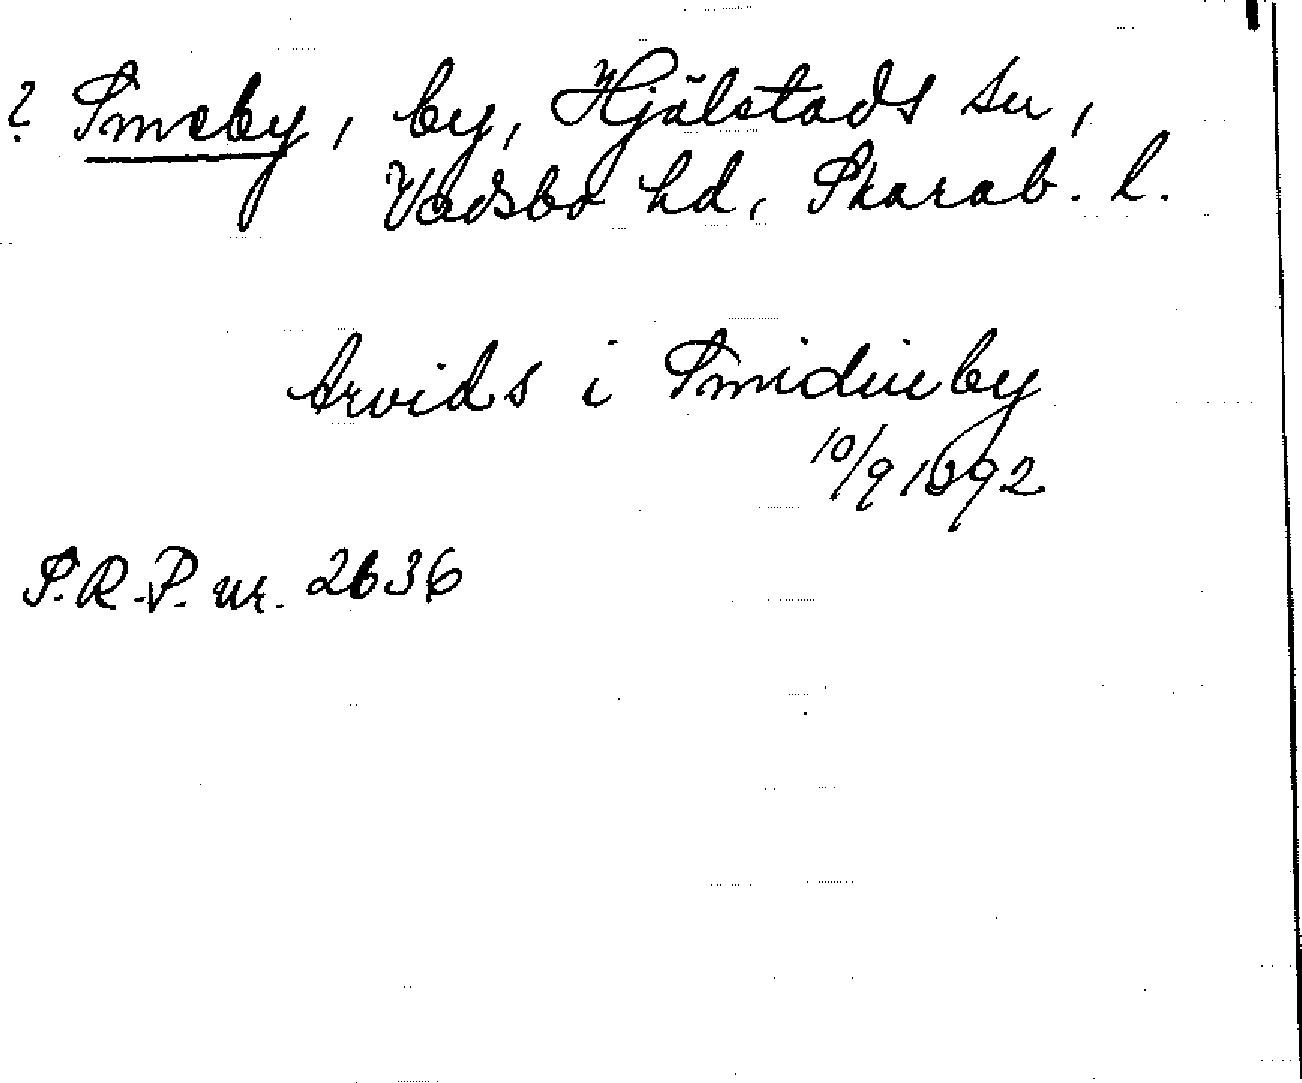 ? Smeby, by, Hjälstads sn,
Vadsbo hd, Skarab. l.
Arvids i Smidiuby
10/9 1392
S.R.P. nr. 2636